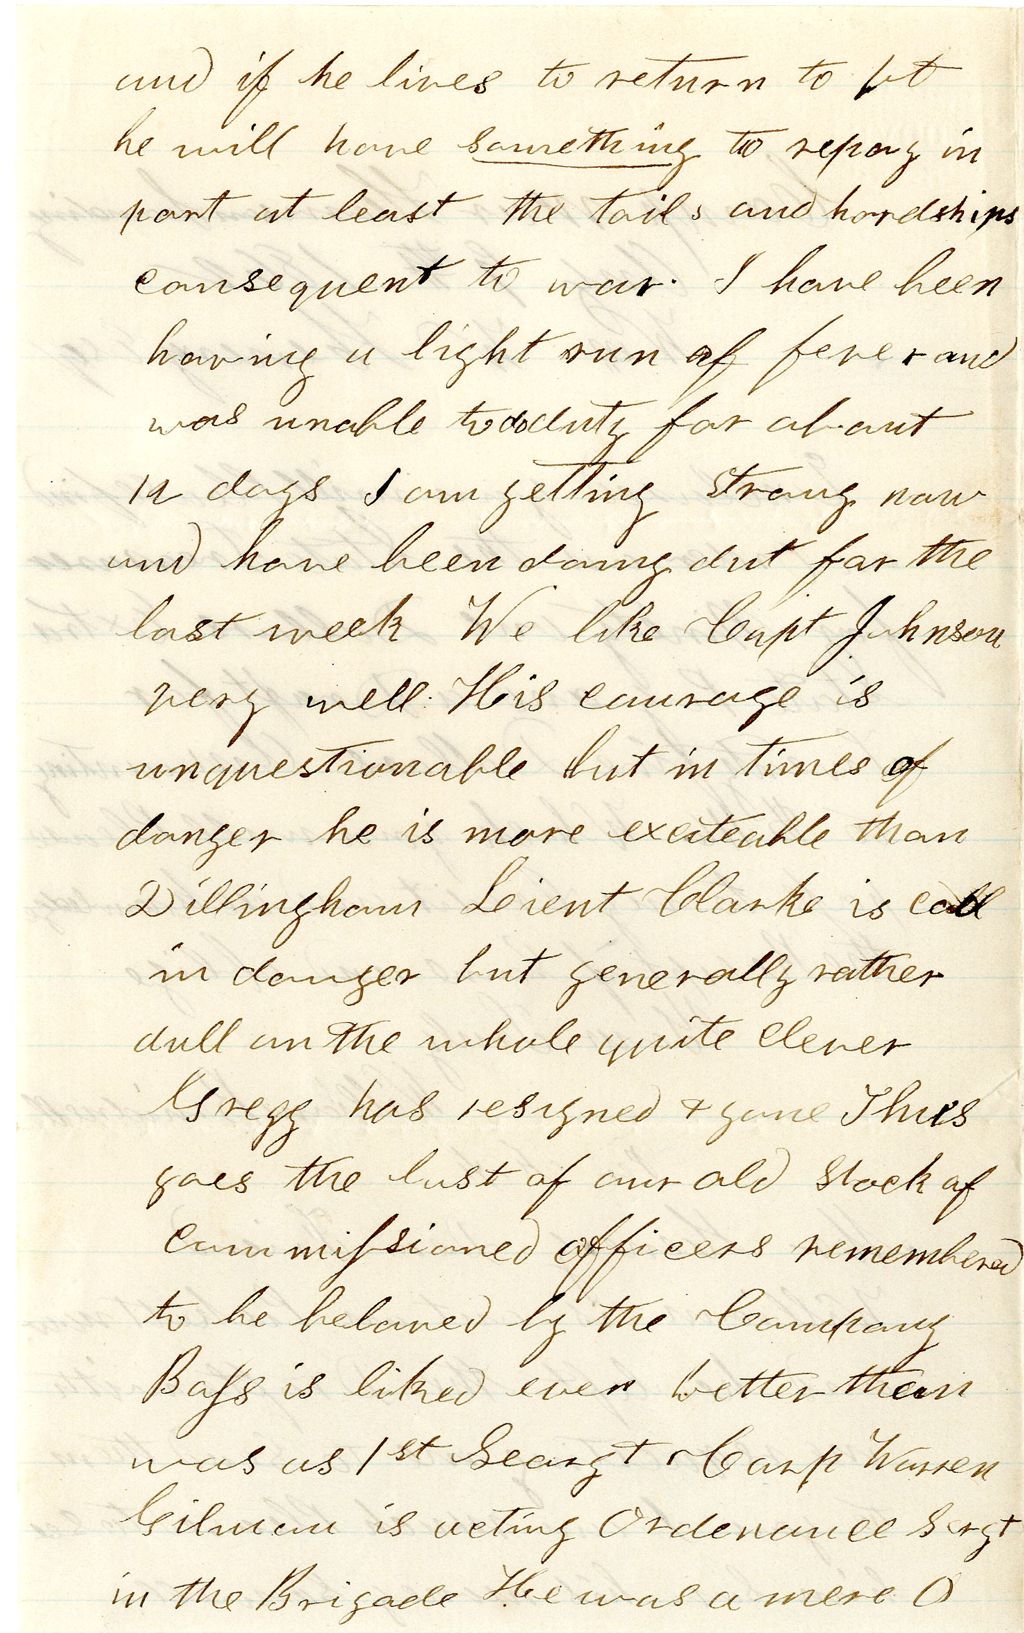 and if he lives to return to Vt
he will have something to repay in
part at least the toils and hardships
consequent to war. I have been
having a light run of fever and
was unable to do duty for about
12 days I am getting strong now
and have been doing dut for the
last week We like Capt Johnson
very well. His courage is
unquestionable but in times of
danger he is more exciteable than
Dillingham Leient Clarke is cool
in danger but generally rather
dull on the whole quite clever
Gregg has resigned & gone Thus
goes the last of our old stock of
commissioned officers remembered
to be beloved by the Company
Bass is liked even better than
was as 1st Seargt Corp Warren
Gilman is acting Ordenance Sergt
in the Brigade He was a mere O